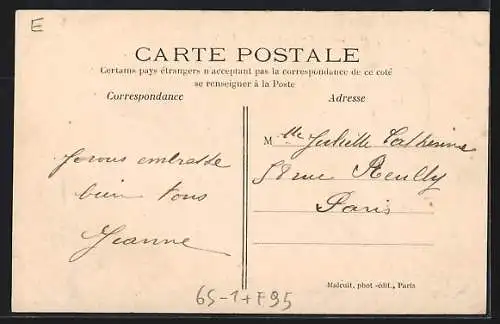 E
CARTE POSTALE
Certains pays étrangers n'acceptant pas la correspondance de ce coté
se renseigner à la Poste
Correspondance
Adresse
Je vous embrasse
bien tous
Jeanne
Mlle Juliette Catherine
58 rue Reuilly
Paris
Malcuit, phot-édit., Paris
65-1+F95